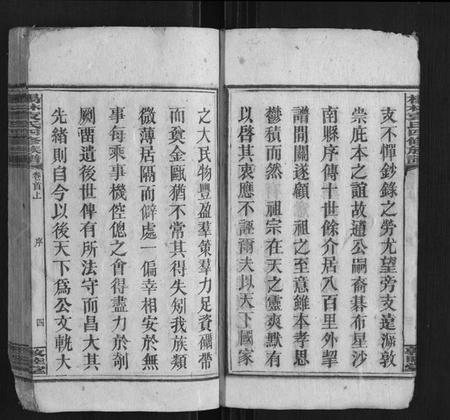 支不憚鈔錄之勞尤望旁支遠派敦
崇庇本之誼故適公嗣裔碁布星沙
南縣序傳十世餘介居八百里外挈
譜開闢遂顧 祖之至意維本孝思
鬱積而然 祖宗在天之靈爽默有
以啓其衷應不誣爾夫以天下國家
之大民物豐盈羣策羣力足資礪帶
而奠金甌猶不常其得失矧我族類
微薄居隔而僻處一偏幸相安於無
事每乘事機倥傯之會得盡力於剞
劂留遺後世俾有所法守而昌大其
先緒則自今以後天下爲公文軌大
卷首上 序 四